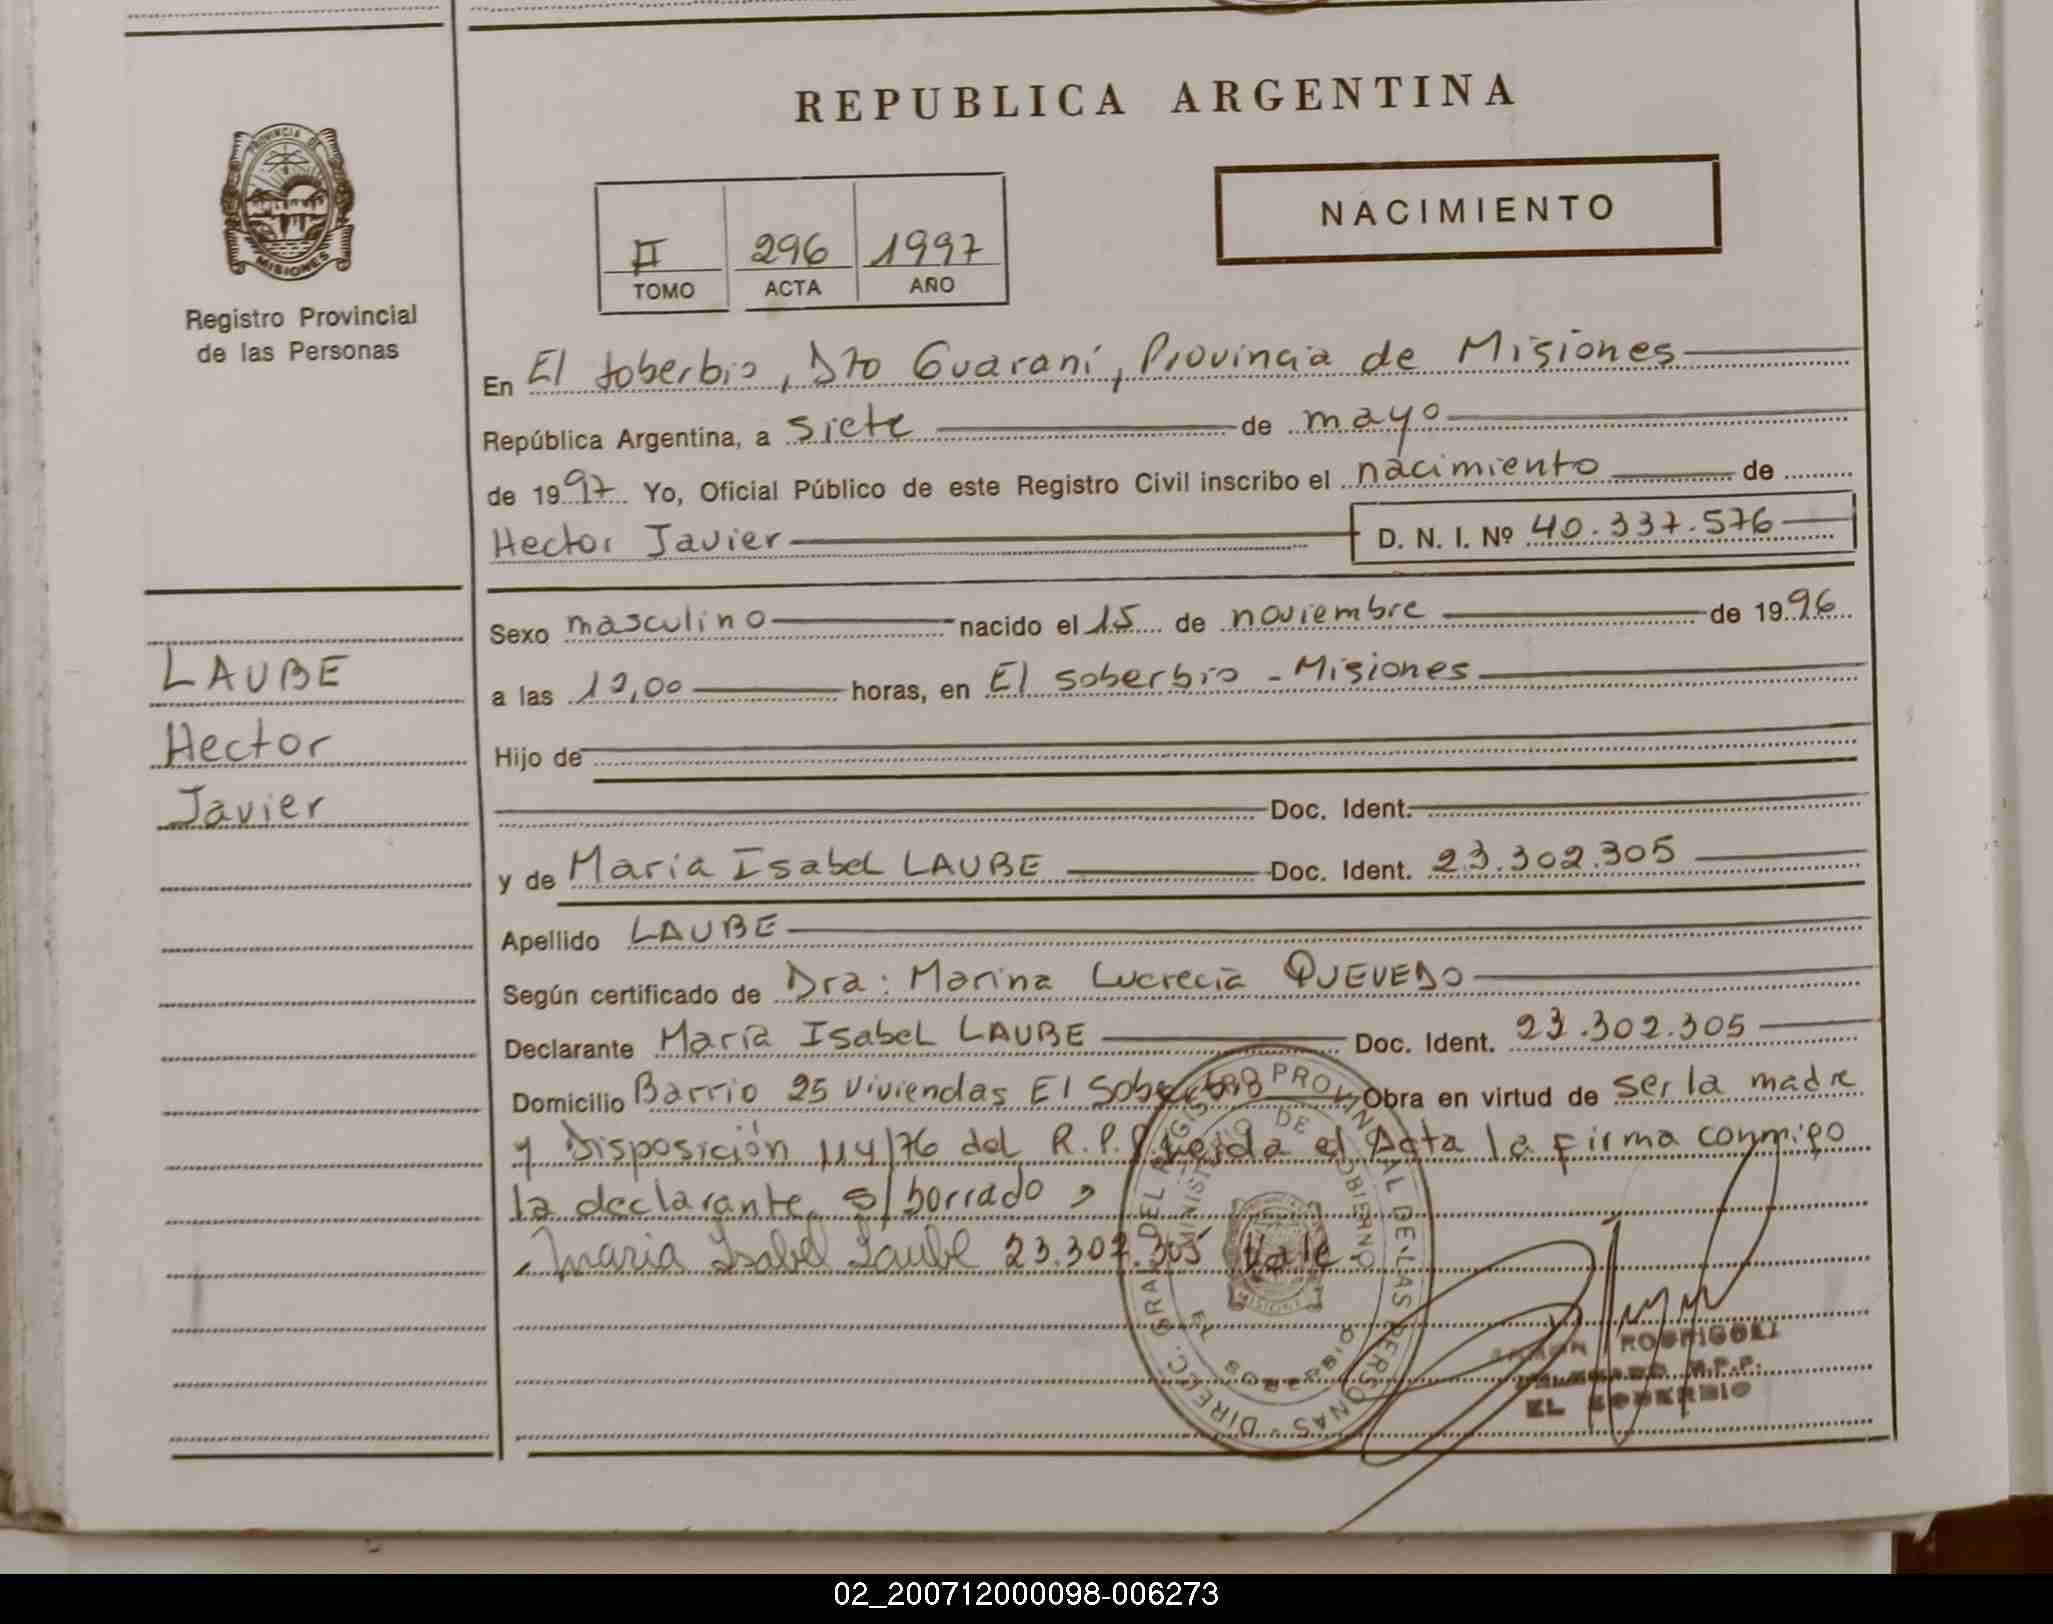 REPUBLICA ARGENTINA
PROVINCIA DE
MISIONES
Registro Provincial
de las Personas
II 296 1997
TOMO ACTA AÑO
NACIMIENTO
En El Soberbio, Dto Guaraní, Provincia de Misiones
República Argentina, a siete de mayo
de 1997 Yo, Oficial Público de este Registro Civil inscribo el nacimiento de
Hector Javier D. N. I. Nº 40.337.576
Sexo masculino nacido el 15 de noviembre de 1996
a las horas, en El Soberbio - Misiones
Hijo de
Doc. Ident.
y de Maria Isabel LAUBE Doc. Ident. 23.302.305
Apellido LAUBE
Según certificado de Dra: Marina Lucrecia QUEVEDO
Declarante María Isabel LAUBE Doc. Ident. 23.302.305
Domicilio Barrio 25 Viviendas El Soberbio Obra en virtud de ser la madre
y Disposición 114/76 del R.P.P. Leida el Acta la firma conmigo
la declarante. s/borrado
Maria Isabel Laube 23.302.305 Vale
LAUBE
Hector
Javier
DIRECC. GRAL DEL REGISTRO PROVINCIAL DE LAS PERSONAS
MINISTERIO DE GOBIERNO
MISIONES
EL SOBERBIO
RAMON
EL SOBERBIO
02_200712000098-006273